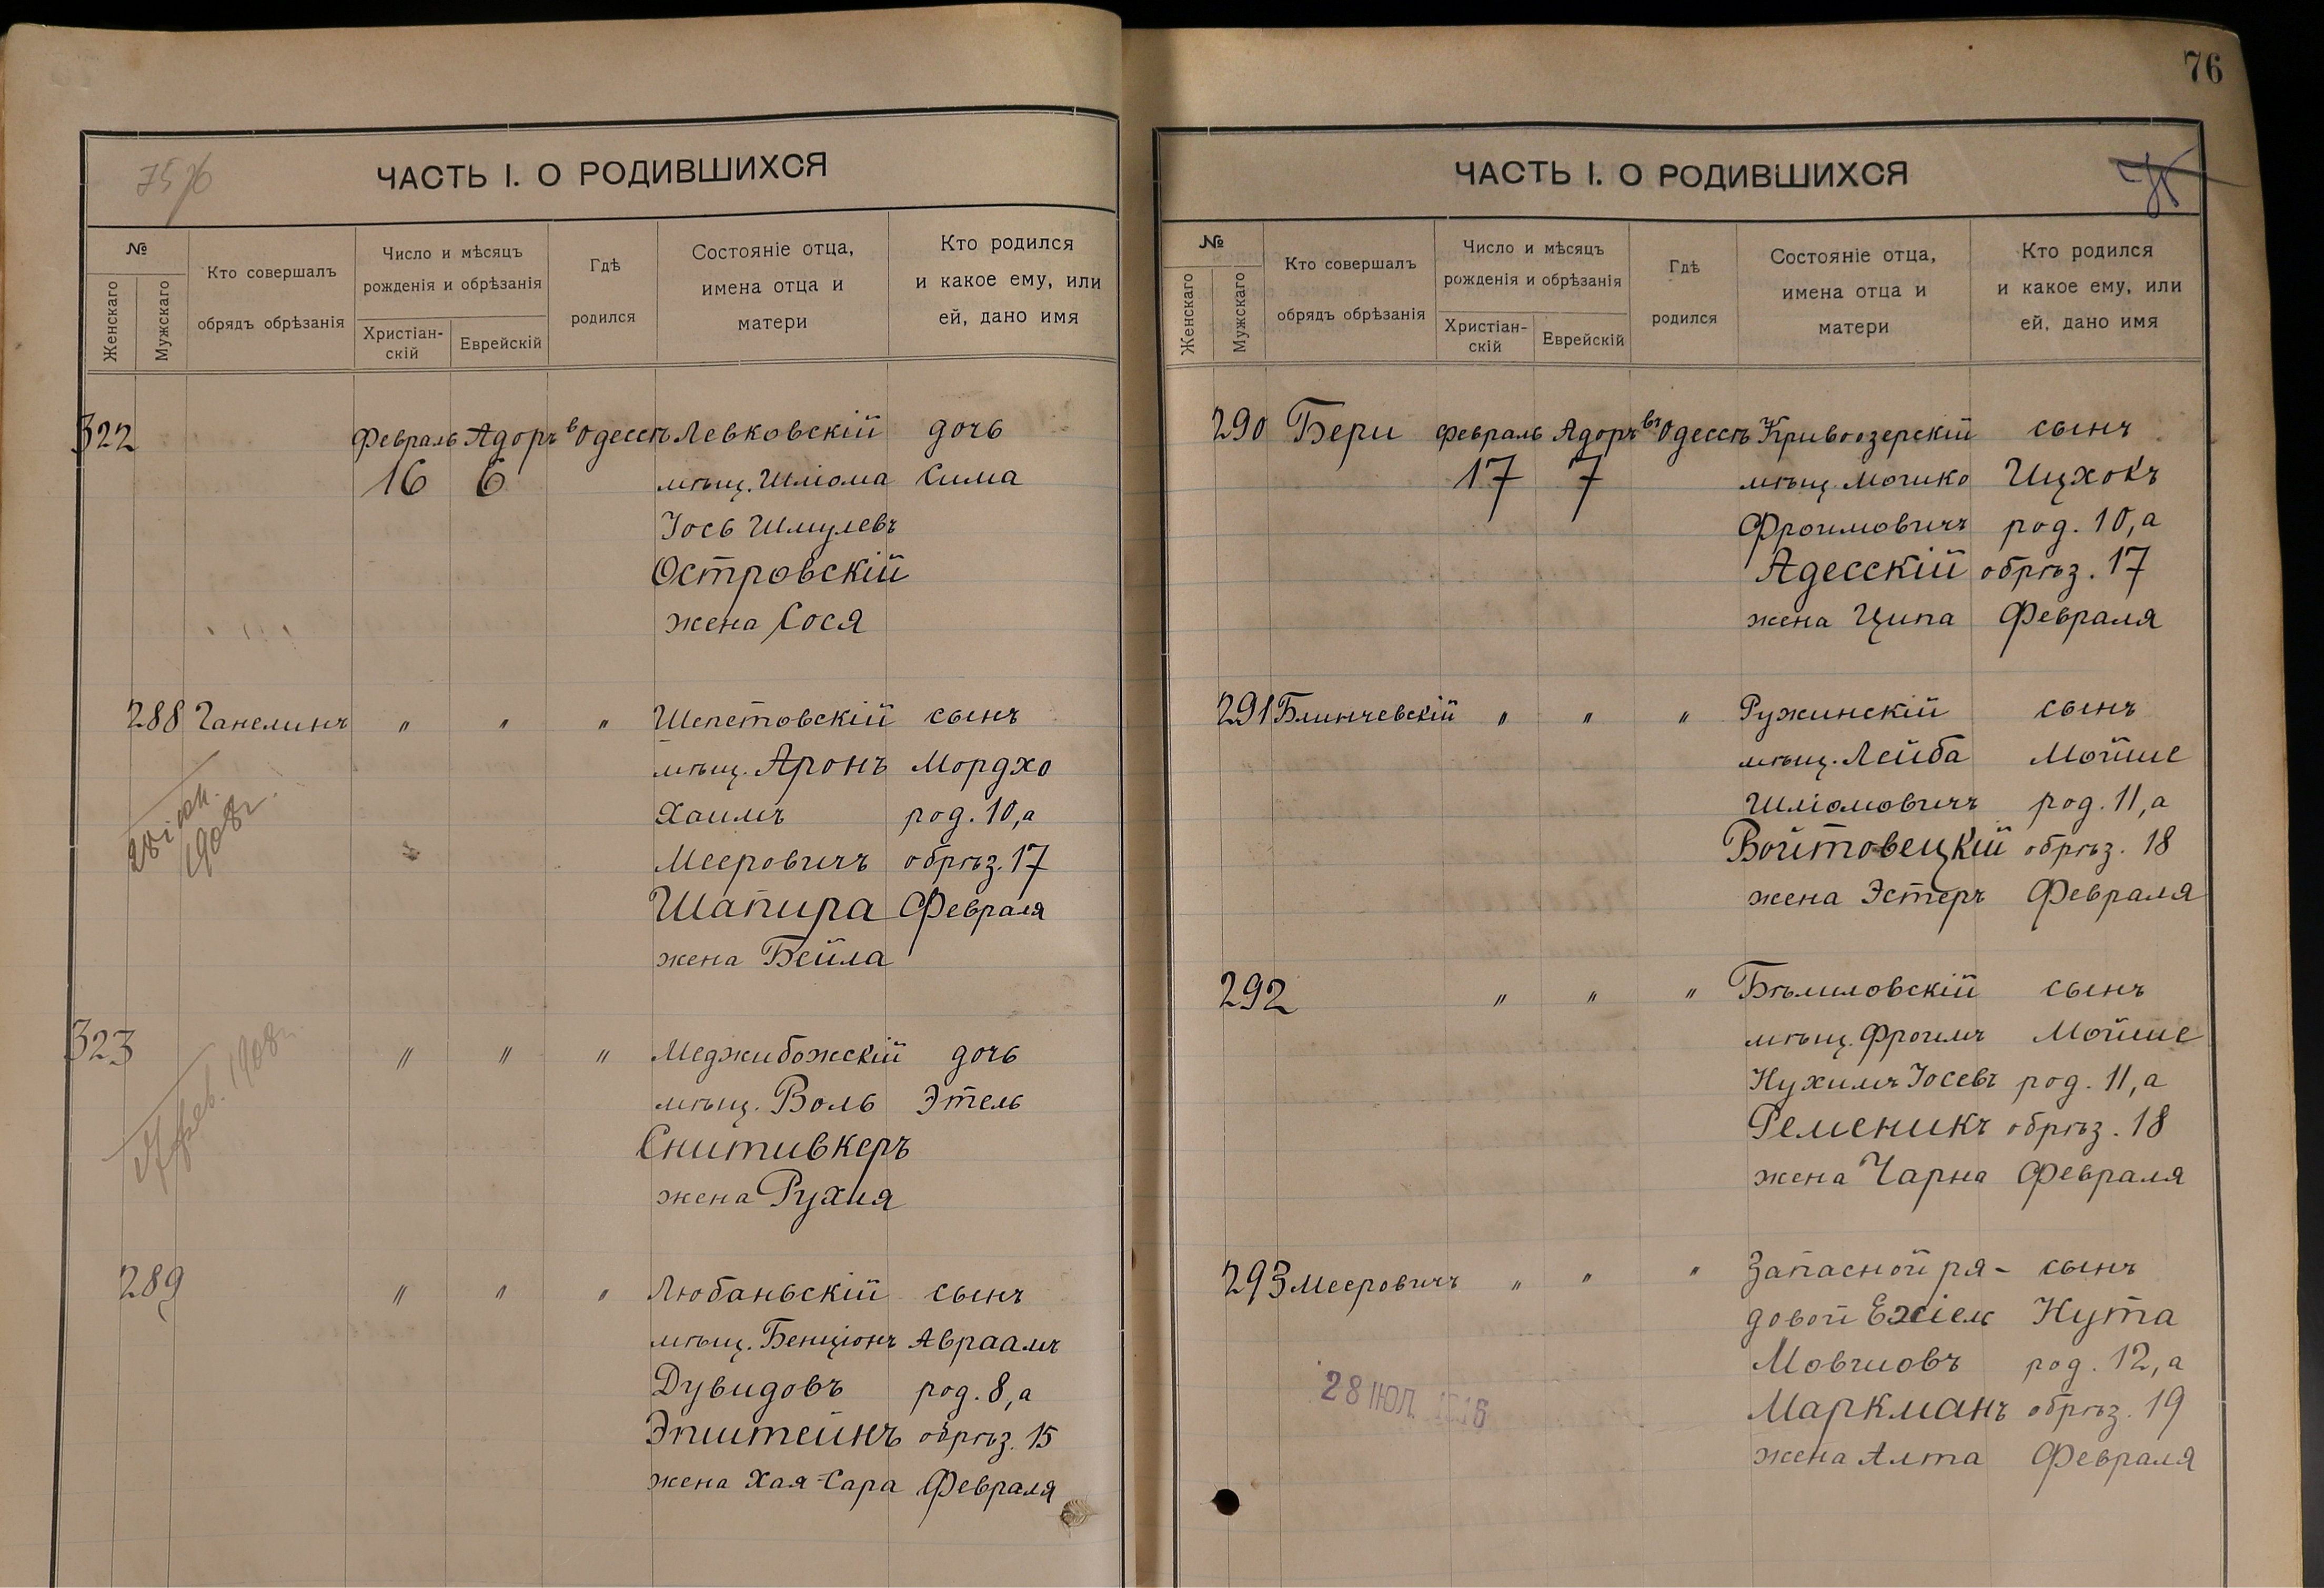 76
75 76
ЧАСТЬ I. О РОДИВШИХСЯ
№
Женскаго
Мужскаго
Кто совершалъ
обрядъ обрѣзанія
Число и мѣсяцъ
рожденія и обрѣзанія
Христіан-
скій
Еврейскій
Гдѣ
родился
Состояніе отца,
имена отца и
матери
Кто родился
и какое ему, или
ей, дано имя
322 Февраль Адоръ в Одессѣ Левковскій дочь
16 6 мѣщ. Шліома Сима
Іось Шмулевъ
Островскій
жена Сося
288 Ганелинъ " " " Шепетовскій сынъ
мѣщ. Аронъ Мордхо
Хаимъ род. 10, а
Мееровичъ обрѣз. 17
Шапира Февраля
жена Бейла
1908г.
323 " " " Меджибожскій дочь
мѣщ. Воль Этель
Снитивкеръ
жена Рухля
фев. 1908г.
289 " " " Любаньскій сынъ
мѣщ. Бенціонъ Авраамъ
Дувидовъ род. 8, а
Эпштейнъ обрѣз. 15
жена Хая-Сара Февраля
ЧАСТЬ I. О РОДИВШИХСЯ
№
Женскаго
Мужскаго
Кто совершалъ
обрядъ обрѣзанія
Число и мѣсяцъ
рожденія и обрѣзанія
Христіан-
скій
Еврейскій
Гдѣ
родился
Состояніе отца,
имена отца и
матери
Кто родился
и какое ему, или
ей, дано имя
290 Бери Февраль Адоръ въ Одессѣ Кривоозерскій сынъ
17 7 мѣщ. Мошко Ицхокъ
Фроимовичъ род. 10, а
Адесскій обрѣз. 17
жена Ципа Февраля
291 Блинчевскій " " " Ружинскій сынъ
мѣщ. Лейба Мойше
Шліомовичъ род. 11, а
Войтовецкій обрѣз. 18
жена Эстеръ Февраля
292 " " " Бѣлиловскій сынъ
мѣщ. Фроимъ Мойше
Нухимъ Іосевъ род. 11, а
Ременикъ обрѣз. 18
жена Чарна Февраля
293 Мееровичъ " " " Запасной ря- сынъ
довой Ехіель Нута
Мовшовъ род. 12, а
Маркманъ обрѣз. 19
жена Алта Февраля
28 ИЮЛ.